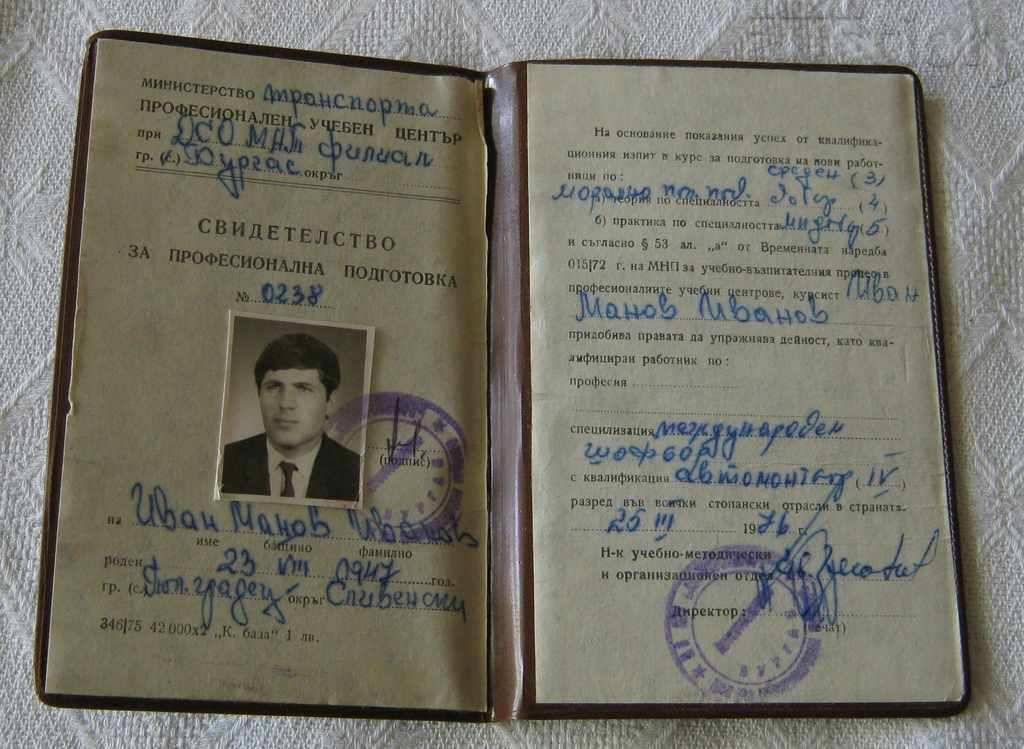 МИНИСТЕРСТВО транспорта
ПРОФЕСИОНАЛЕН УЧЕБЕН ЦЕНТЪР
при ДСО МАТ филиал
гр. (с.) Бургас окръг
СВИДЕТЕЛСТВО
ЗА ПРОФЕСИОНАЛНА ПОДГОТОВКА
№ 0238
(подпис)
на Иван Манов Иванов
име бащино фамилно
роден 23 VIII 1947 год.
гр. (с.) окръг Сливенски
346|75 42 000х2 „К. база“ 1 лв.
На основание показания успех от квалифика-
ционния изпит в курс за подготовка на нови работ-
ници по: среден (3)
а) теория по специалността (4)
б) практика по специалността (5)
и съгласно § 53 ал. „а“ от Временната наредба
015|72 г. на МНП за учебно-възпитателния процес в
професионалните учебни центрове, курсист Иван
Манов Иванов
придобива правата да упражнява дейност, като ква-
лифициран работник по:
професия
специлизация международен
шофьор
с квалификация автомонтьор (IV)
разред във всички стопански отрасли в страната.
25 III 1976 г.
Н-к учебно-методически
и организационен отдел
Директор:
(печат)
БУРГАС